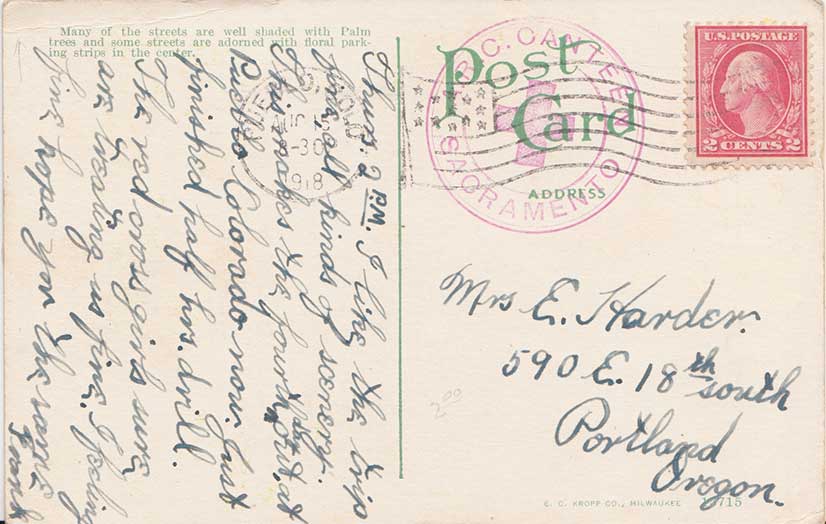 Many of the streets are well shaded with Palm
trees and some streets are adorned with floral park-
ing strips in the center.
Thurs. 2 P.M. I like the trip
fine, all kinds of scenery.
This makes the fourth st. at
Pueblo Colorado now. Just
finished half hrs. drill.
The red cross girls sure
are treating us fine. I feeling
fine hope you the same
Frank
PUEBLO, COLO
AUG 15
30
1918
Post
Card
ADDRESS
R. C. CANTEEN
SACRAMENTO
U.S. POSTAGE
2 CENTS 2
Mrs E. Harder.
590 E. 18th south
Portland
Oregon.
2 00
E. C. KROPP CO., MILWAUKEE
715